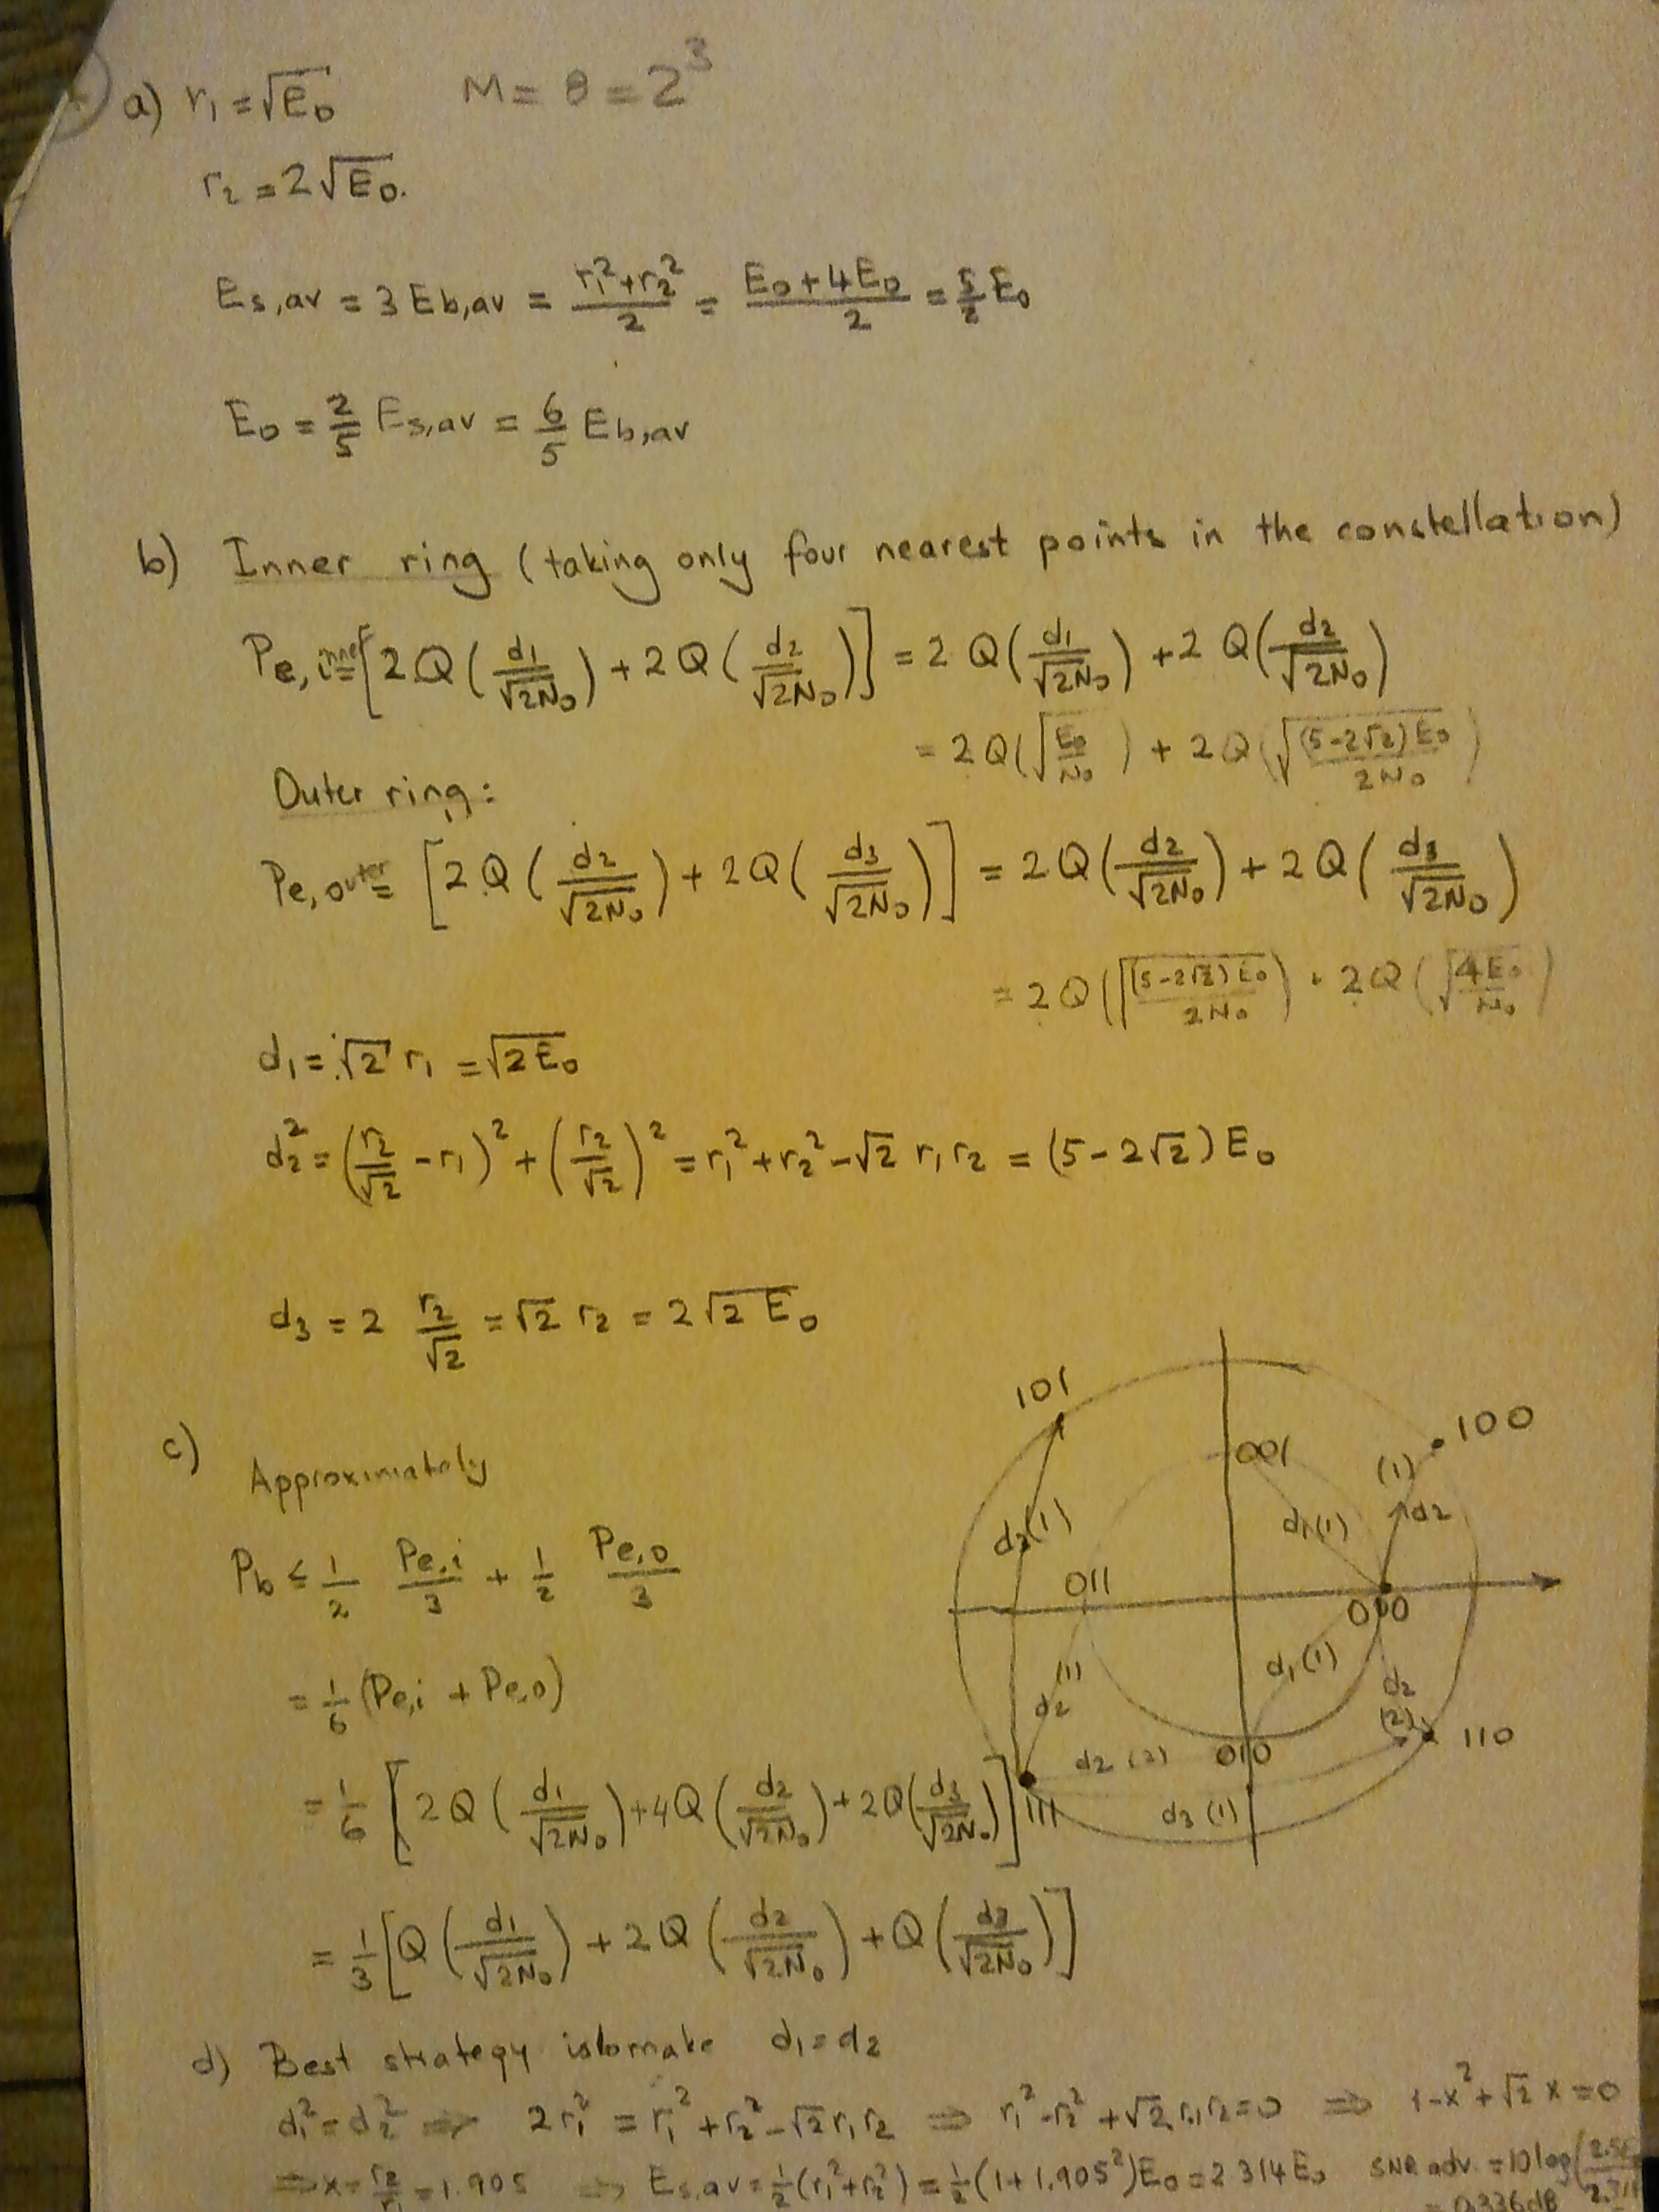 a) r₁ = √E₀ M = 8 = 2³
r₂ = 2√E₀.
Es,av = 3 Eb,av = (r₁² + r₂²)/2 = (E₀ + 4E₀)/2 = 5/2 E₀
E₀ = 2/5 Es,av = 6/5 Eb,av
b) Inner ring (taking only four nearest points in the constellation)
Pe,inner = [2Q(d₁/√2N₀) + 2Q(d₂/√2N₀)] = 2Q(d₁/√2N₀) + 2Q(d₂/√2N₀)
= 2Q(√(E₀/N₀)) + 2Q(√((5-2√2)E₀/2N₀))
Outer ring:
Pe,outer = [2Q(d₂/√2N₀) + 2Q(d₃/√2N₀)] = 2Q(d₂/√2N₀) + 2Q(d₃/√2N₀)
= 2Q(√((5-2√2)E₀/2N₀)) + 2Q(√(4E₀/N₀))
d₁ = √2 r₁ = √2E₀
d₂² = (r₂/√2 - r₁)² + (r₂/√2)² = r₁² + r₂² - √2 r₁r₂ = (5-2√2)E₀
d₃ = 2 r₂/√2 = √2 r₂ = 2√2E₀
c) Approximately
Pb ≤ 1/2 Pe,i/3 + 1/2 Pe,o/3
= 1/6 (Pe,i + Pe,o)
= 1/6 [2Q(d₁/√2N₀) + 4Q(d₂/√2N₀) + 2Q(d₃/√2N₀)]
= 1/3 [Q(d₁/√2N₀) + 2Q(d₂/√2N₀) + Q(d₃/√2N₀)]
101
100
001
(1)
d₂
d₁(1)
d₃(1)
011
000
d₁(1)
(1)
d₂
d₂
(2)
110
010
d₂ (2)
111
d₃(1)
d) Best strategy is to make d₁ = d₂
d₁² = d₂² ⇒ 2r₁² = r₁² + r₂² - √2 r₁r₂ ⇒ r₁² - r₂² + √2 r₁r₂ = 0 ⇒ 1 - x² + √2 x = 0
⇒ x = r₂/r₁ = 1.905 ⇒ Es,av = 1/2 (r₁² + r₂²) = 1/2 (1 + 1.905²)E₀ = 2.314E₀ SNR adv. = 10 log(
= 0.336 dB